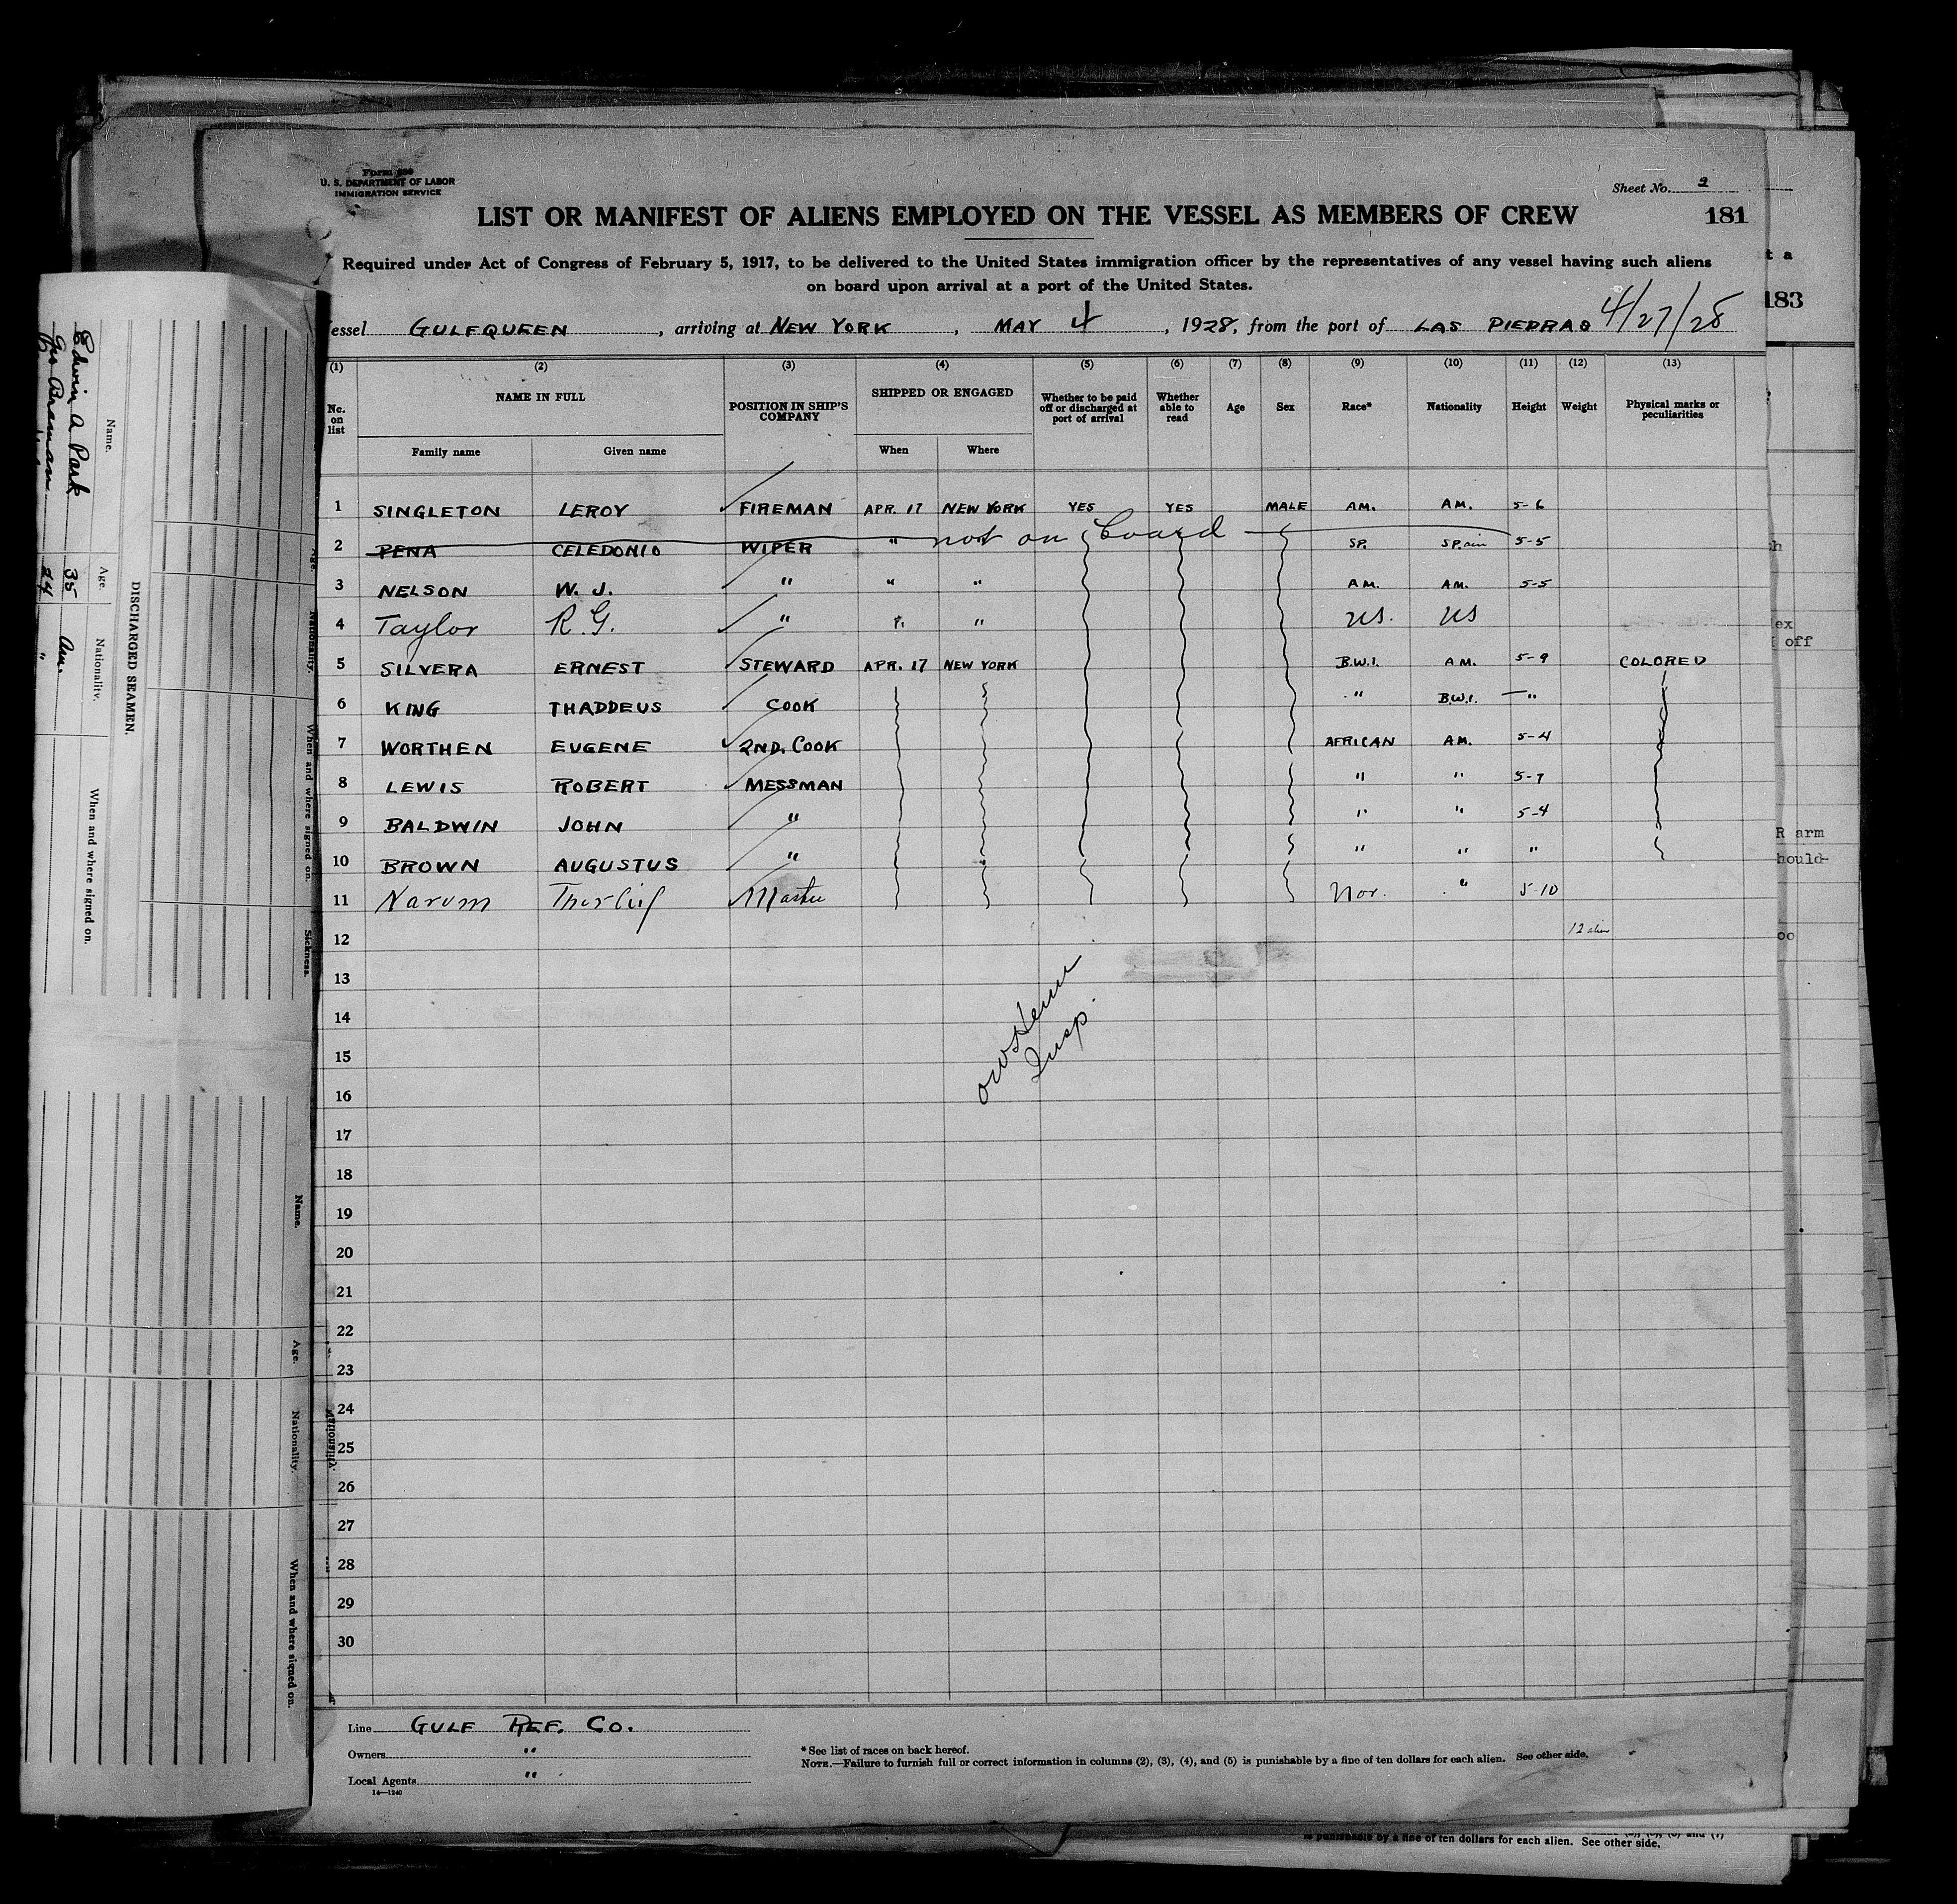 Form 689
U. S. DEPARTMENT OF LABOR
IMMIGRATION SERVICE
Sheet No. 2
LIST OR MANIFEST OF ALIENS EMPLOYED ON THE VESSEL AS MEMBERS OF CREW
181
Required under Act of Congress of February 5, 1917, to be delivered to the United States immigration officer by the representatives of any vessel having such aliens
on board upon arrival at a port of the United States.
essel GULFQUEEN, arriving at NEW YORK, MAY 4, 1928, from the port of LAS PIEDRAS 4/27/28
(1) (2) (3) (4) (5) (6) (7) (8) (9) (10) (11) (12) (13)
No. on list NAME IN FULL POSITION IN SHIP'S COMPANY SHIPPED OR ENGAGED Whether to be paid off or discharged at port of arrival Whether able to read Age Sex Race* Nationality Height Weight Physical marks or peculiarities
Family name Given name When Where
1 SINGLETON LEROY FIREMAN APR. 17 NEW YORK YES YES MALE AM. AM. 5-6
2 PENA CELEDONIO WIPER " " not on board SP. SPain 5-5
3 NELSON W. J. " " " AM. AM. 5-5
4 Taylor R.G. " " " US. US
5 SILVERA ERNEST STEWARD APR. 17 NEW YORK B.W.I. AM. 5-9 COLORED
6 KING THADDEUS COOK " B.W.I. — "
7 WORTHEN EUGENE 2ND. COOK AFRICAN AM. 5-4
8 LEWIS ROBERT MESSMAN " " 5-7
9 BALDWIN JOHN " " " 5-4
10 BROWN AUGUSTUS " " " "
11 Narum Master Nor. " 5-10
12 12
13
14
15
16
Insp.
17
18
19
20
21
22
23
24
25
26
27
28
29
30
Line GULF REF. CO.
Owners "
Local Agents "
14—1240
*See list of races on back hereof.
NOTE.—Failure to furnish full or correct information in columns (2), (3), (4), and (5) is punishable by a fine of ten dollars for each alien. See other side.
DISCHARGED SEAMEN.
Name. Age. Nationality. When and where signed on.
Edwin A Park 35 Am.
24 "
Age. Nationality. When and where signed on. Sickness.
Name. Age. Nationality. When and where signed on.
Nationality.
t a
183
h
ex
off
R arm
hould-
oo
is punishable by a fine of ten dollars for each alien. See other side.